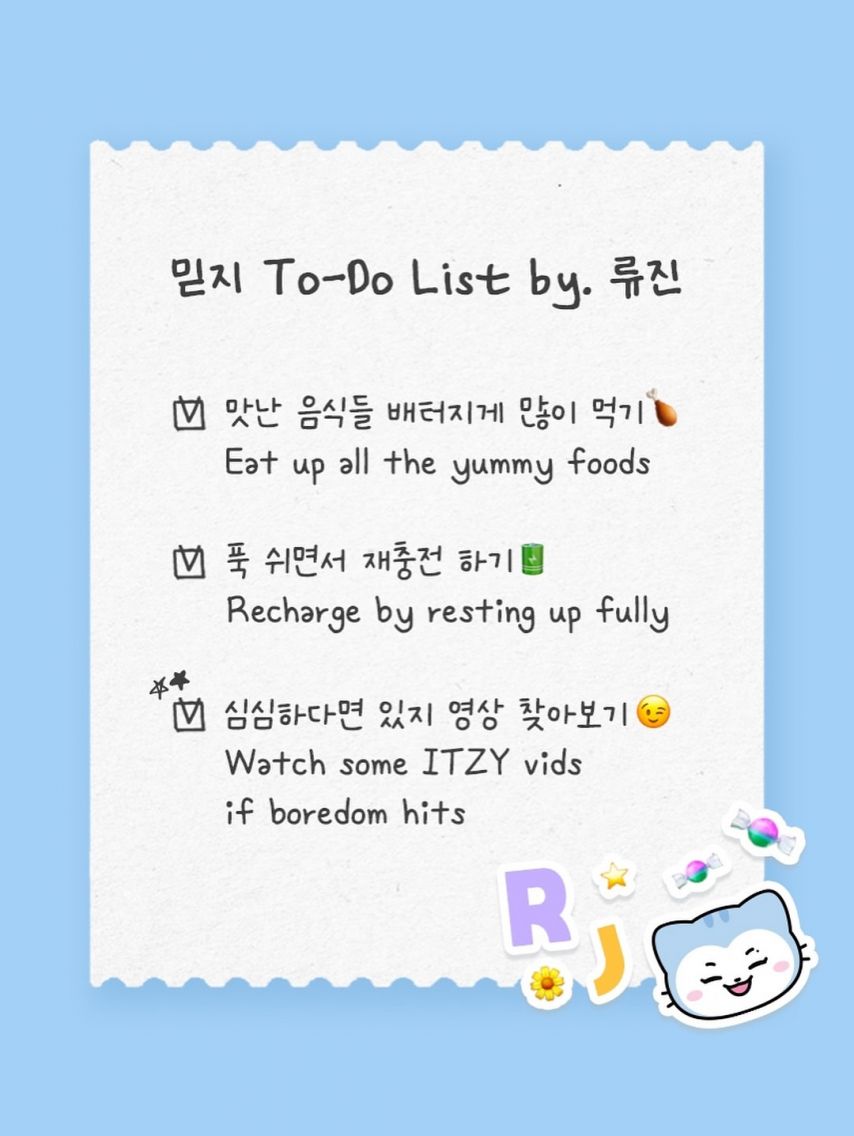 믿지 To-Do List by. 류진
맛난 음식들 배터지게 많이 먹기🍗
Eat up all the yummy foods
푹 쉬면서 재충전 하기🔋
Recharge by resting up fully
심심하다면 있지 영상 찾아보기😉
Watch some ITZY vids
if boredom hits
R
J